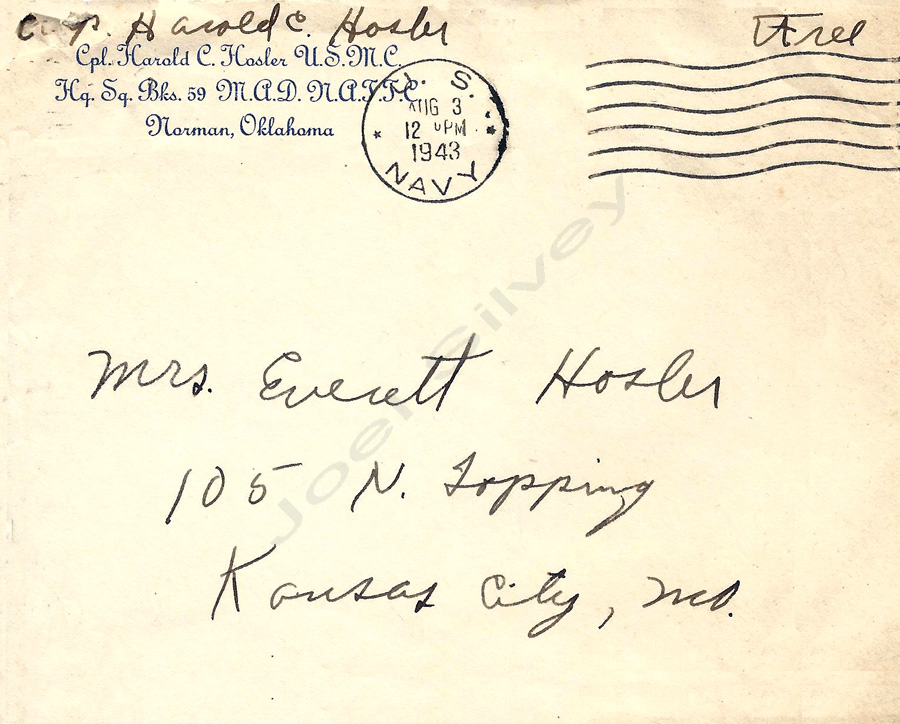 Corp. Harold C. Hosler
Free
Cpl. Harold C. Hosler U.S.M.C.
Hq. Sq. Bks. 59 M.A.D. N.A.T.T.C.
Norman, Oklahoma
U. S.
AUG 3
12 PM
1943
NAVY
Mrs. Everett Hosler
105 N. Topping
Kansas City, Mo.
Joel Silvey